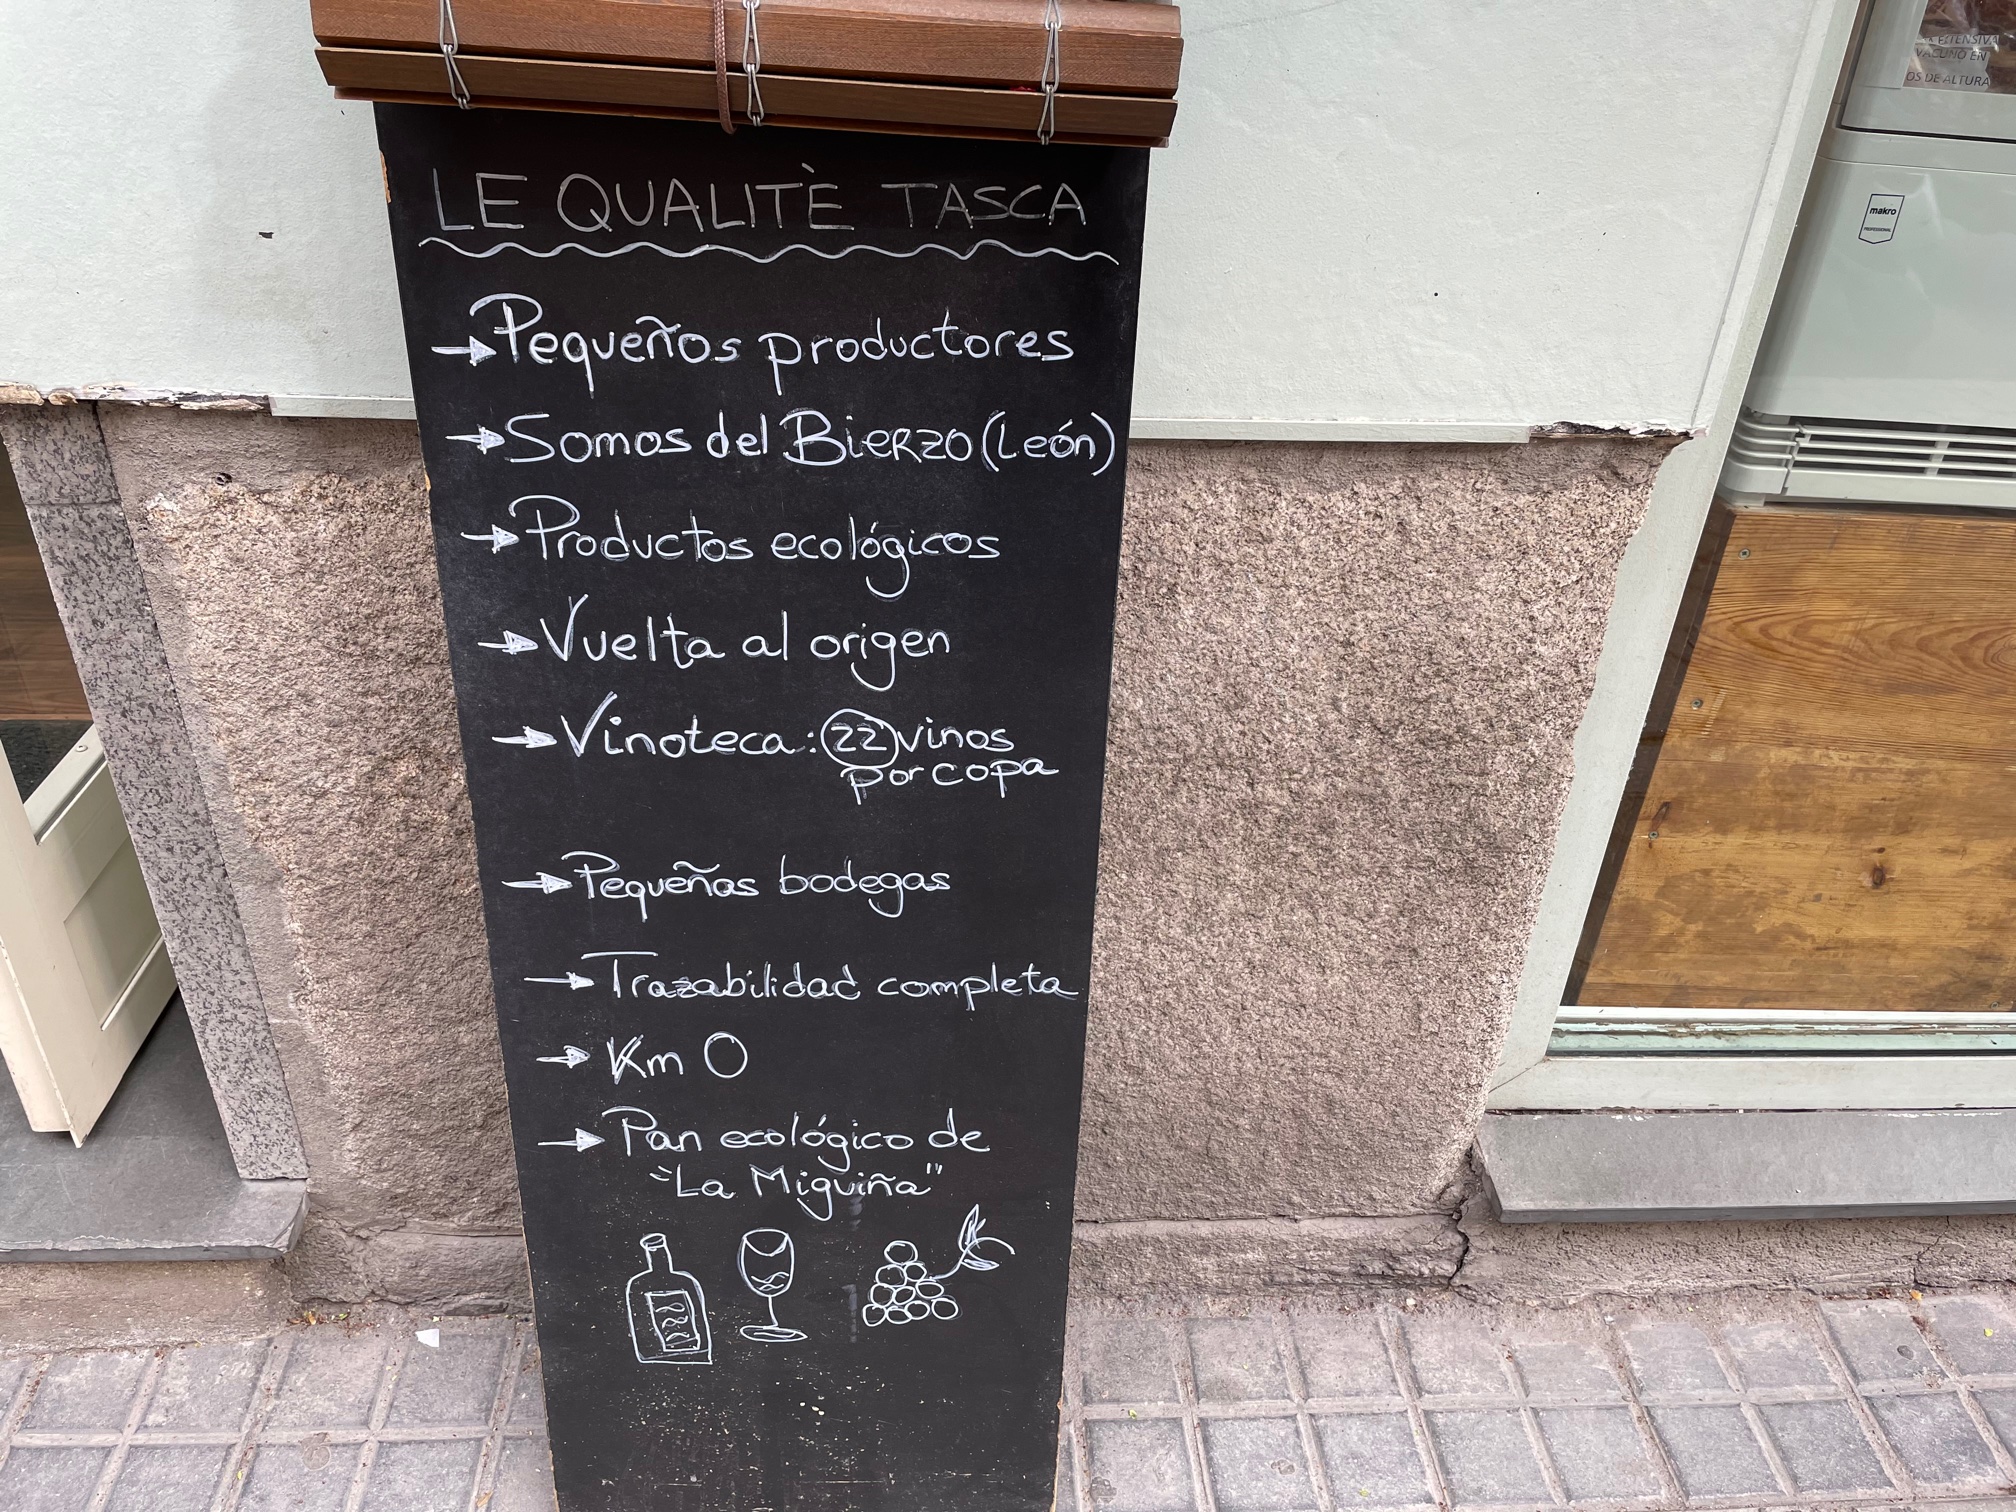 LE QUALITÈ TASCA
Pequeños productores
Somos del Bierzo (León)
Productos ecológicos
Vuelta al origen
Vinoteca: 22 vinos
por copa
Pequeñas bodegas
Trazabilidad completa
Km 0
Pan ecológico de
"La Miguiña"
EXTENSIVA
VACUNO EN
OS DE ALTURA
makro
PROFESSIONAL